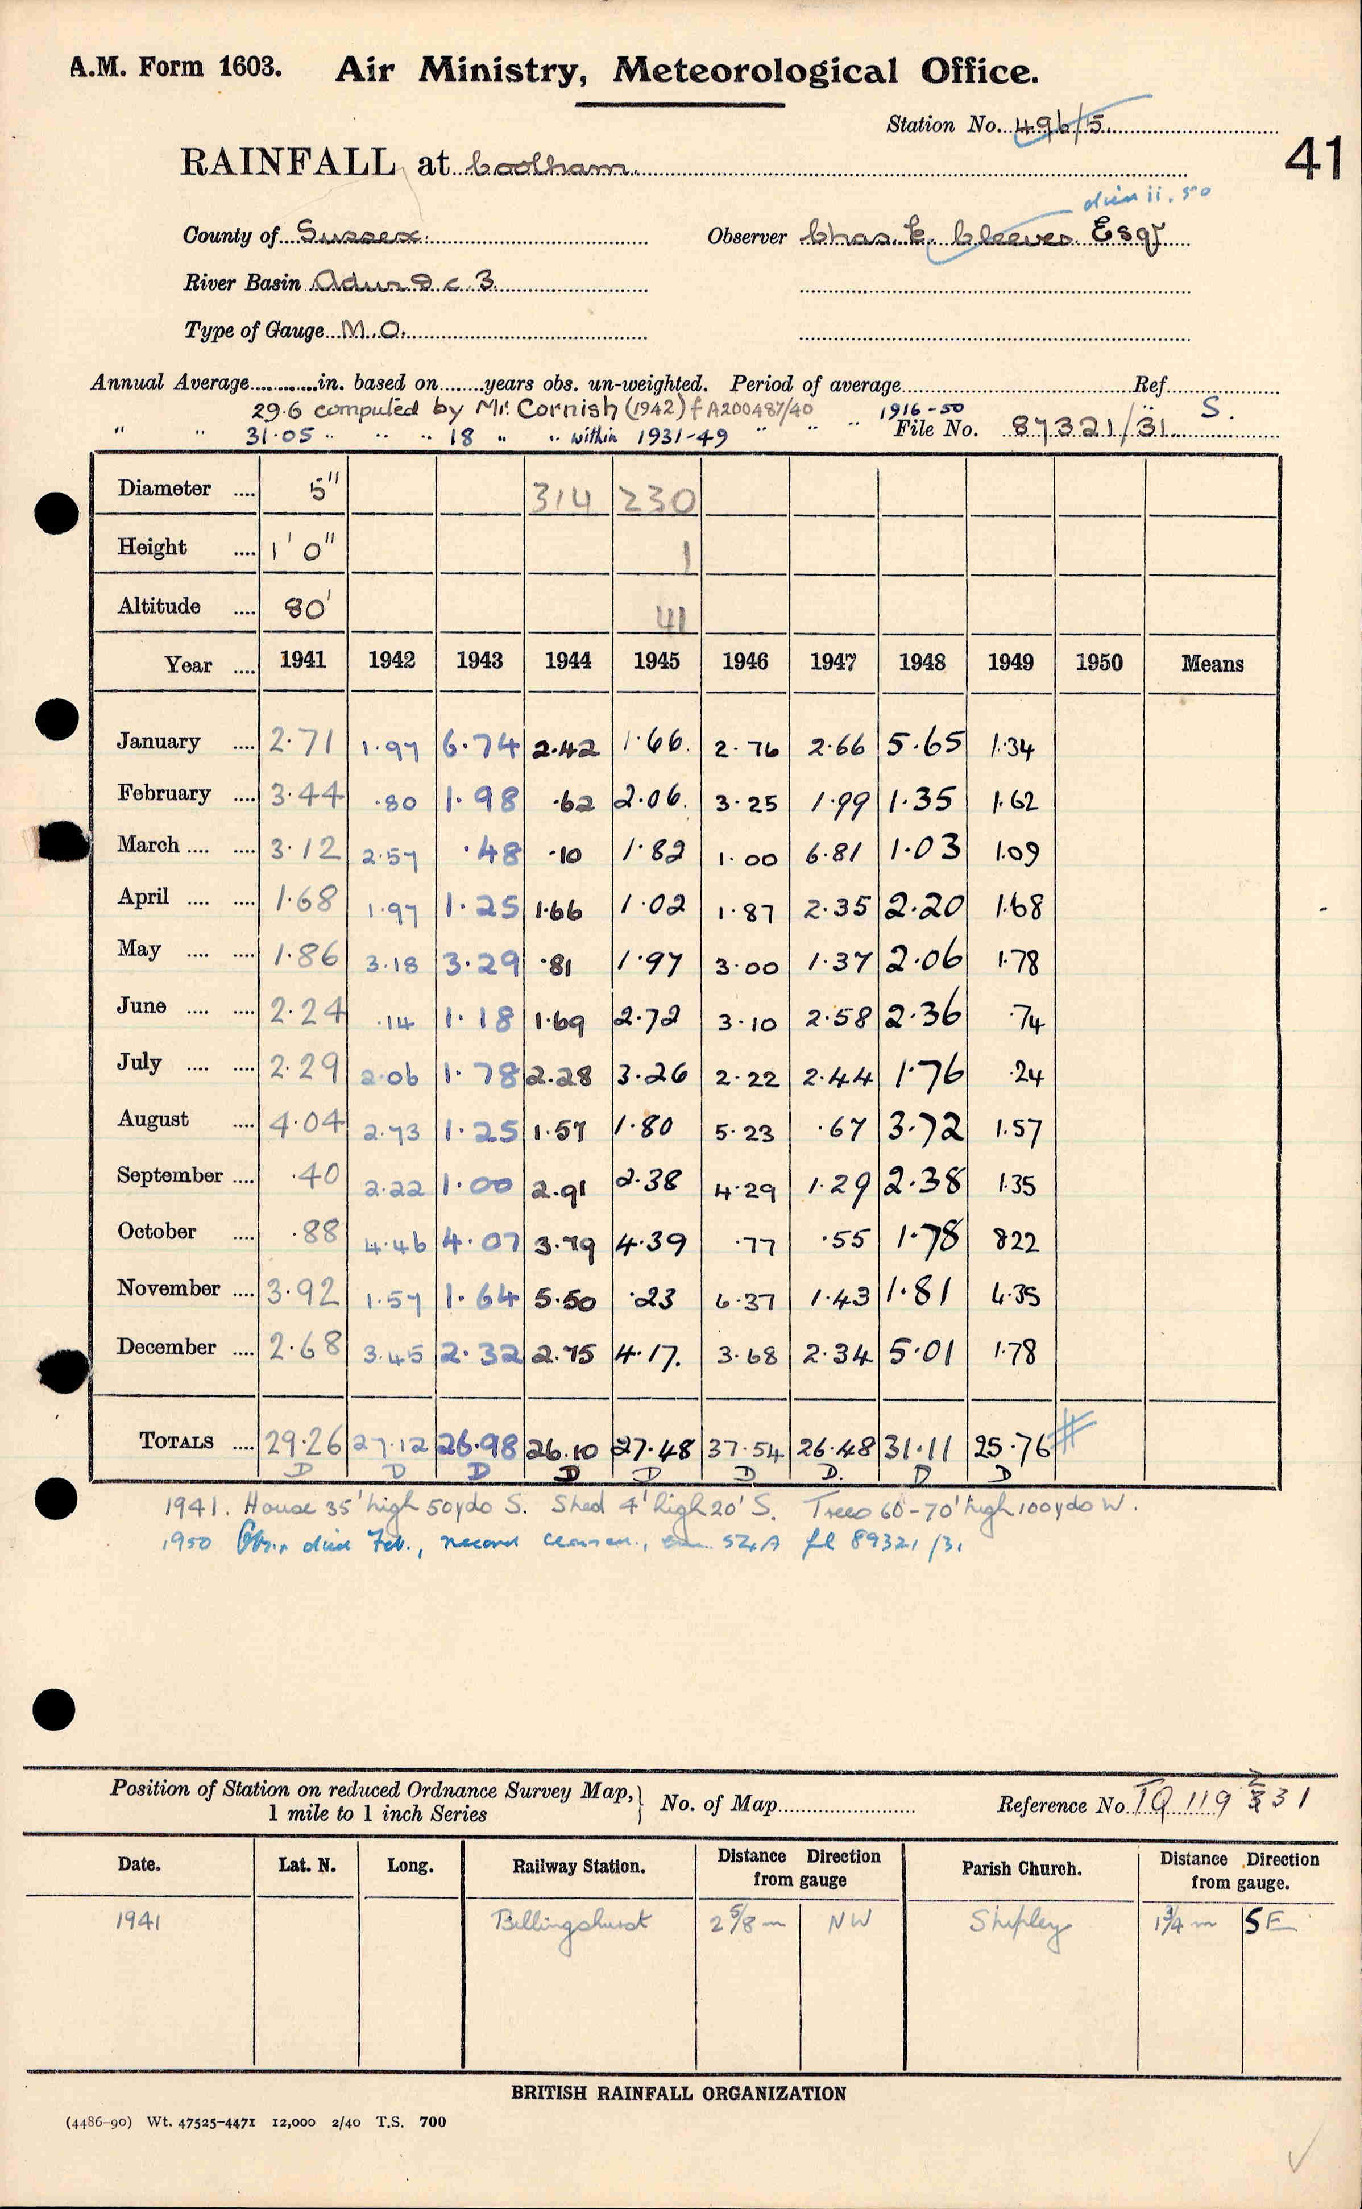 A.M. Form 1603. Air Ministry, Meteorological Office.
Station No. 496/5
41
RAINFALL at Coolham.
died ii.50
County of Sussex. Observer Chas. E. Cleeves Esqr
River Basin Adur & c 3
Type of Gauge M.O.
Annual Average............in. based on.......years obs. un-weighted. Period of average Ref
29.6 computed by Mr. Cornish (1942) f A200487/40 1916-50 S.
" " 31.05 " " " 18 " " within 1931-49 " " " File No. 87321/31
Diameter .... 5" 314 230
Height .... 1' 0" 1
Altitude .... 80' 41
Year .... 1941 1942 1943 1944 1945 1946 1947 1948 1949 1950 Means
January .... 2.71 1.97 6.74 2.42 1.66. 2.76 2.66 5.65 1.34
February .... 3.44 .80 1.98 .62 2.06. 3.25 1.99 1.35 1.62
March .... .... 3.12 2.57 .48 .10 1.82 1.00 6.81 1.03 1.09
April .... .... 1.68 1.97 1.25 1.66 1.02 1.87 2.35 2.20 1.68
May .... .... 1.86 3.18 3.29 .81 1.97 3.00 1.37 2.06 1.78
June .... .... 2.24 .14 1.18 1.69 2.72 3.10 2.58 2.36 .74
July .... .... 2.29 2.06 1.78 2.28 3.26 2.22 2.44 1.76 .24
August .... 4.04 2.73 1.25 1.57 1.80 5.23 .67 3.72 1.57
September .... .40 2.22 1.00 2.91 2.38 4.29 1.29 2.38 1.35
October .... .88 4.46 4.07 3.79 4.39 .77 .55 1.78 822
November .... 3.92 1.57 1.64 5.50 .23 6.37 1.43 1.81 4.35
December .... 2.68 3.45 2.32 2.75 4.17. 3.68 2.34 5.01 1.78
TOTALS .... 29.26 27.12 26.98 26.10 27.48 37.54 26.48 31.11 25.76 #
D D D D D D D. D D
1941. House 35' high 50yds S. Shed 4' high 20' S. Trees 60'-70' high 100yds W.
1950 Obsr. died Feb., record ceased, SZ,A fl 89321/31
Position of Station on reduced Ordnance Survey Map, } No. of Map Reference No. TQ 119 231
1 mile to 1 inch Series
Date. Lat. N. Long. Railway Station. Distance from gauge Direction Parish Church. Distance Direction from gauge.
1941 Billingshurst 2 5/8 m NW Shipley 1 3/4 m SE
BRITISH RAINFALL ORGANIZATION
(4486-90) Wt. 47525-4471 12,000 2/40 T.S. 700